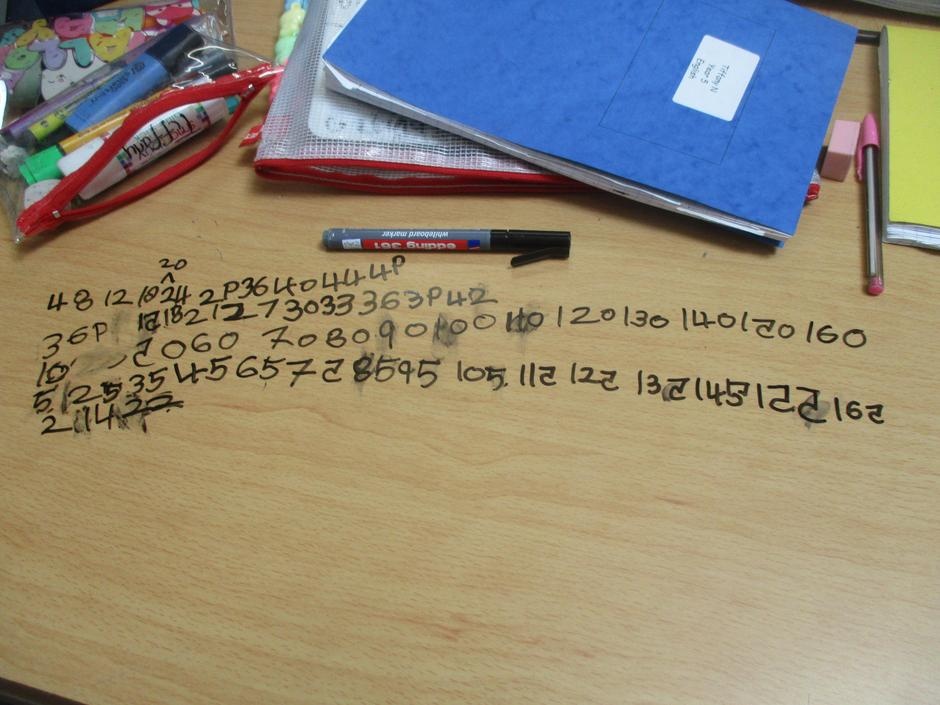 Tiffany
Tiffany N
Year 5
English
edding 361
whiteboard marker
20
4 8 12 16 24 2P 36 40 44 4P
3 6 P 12 18 21 2 27 30 33 36 3P 42
10 50 60 70 80 90 100 110 120 130 140 150 160
5 25 35 45 65 75 85 95 105 115 125 135 145 155 165
2 14 22